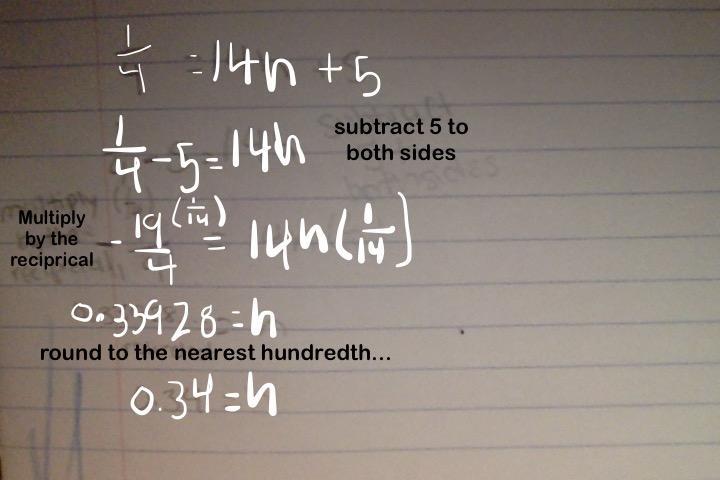 1/4 = 14h + 5
1/4 - 5 = 14h
subtract 5 to
both sides
Multiply
by the
reciprical
- 19/4 (1/14) = 14h (1/14)
0.33928 = h
round to the nearest hundredth...
0.34 = h